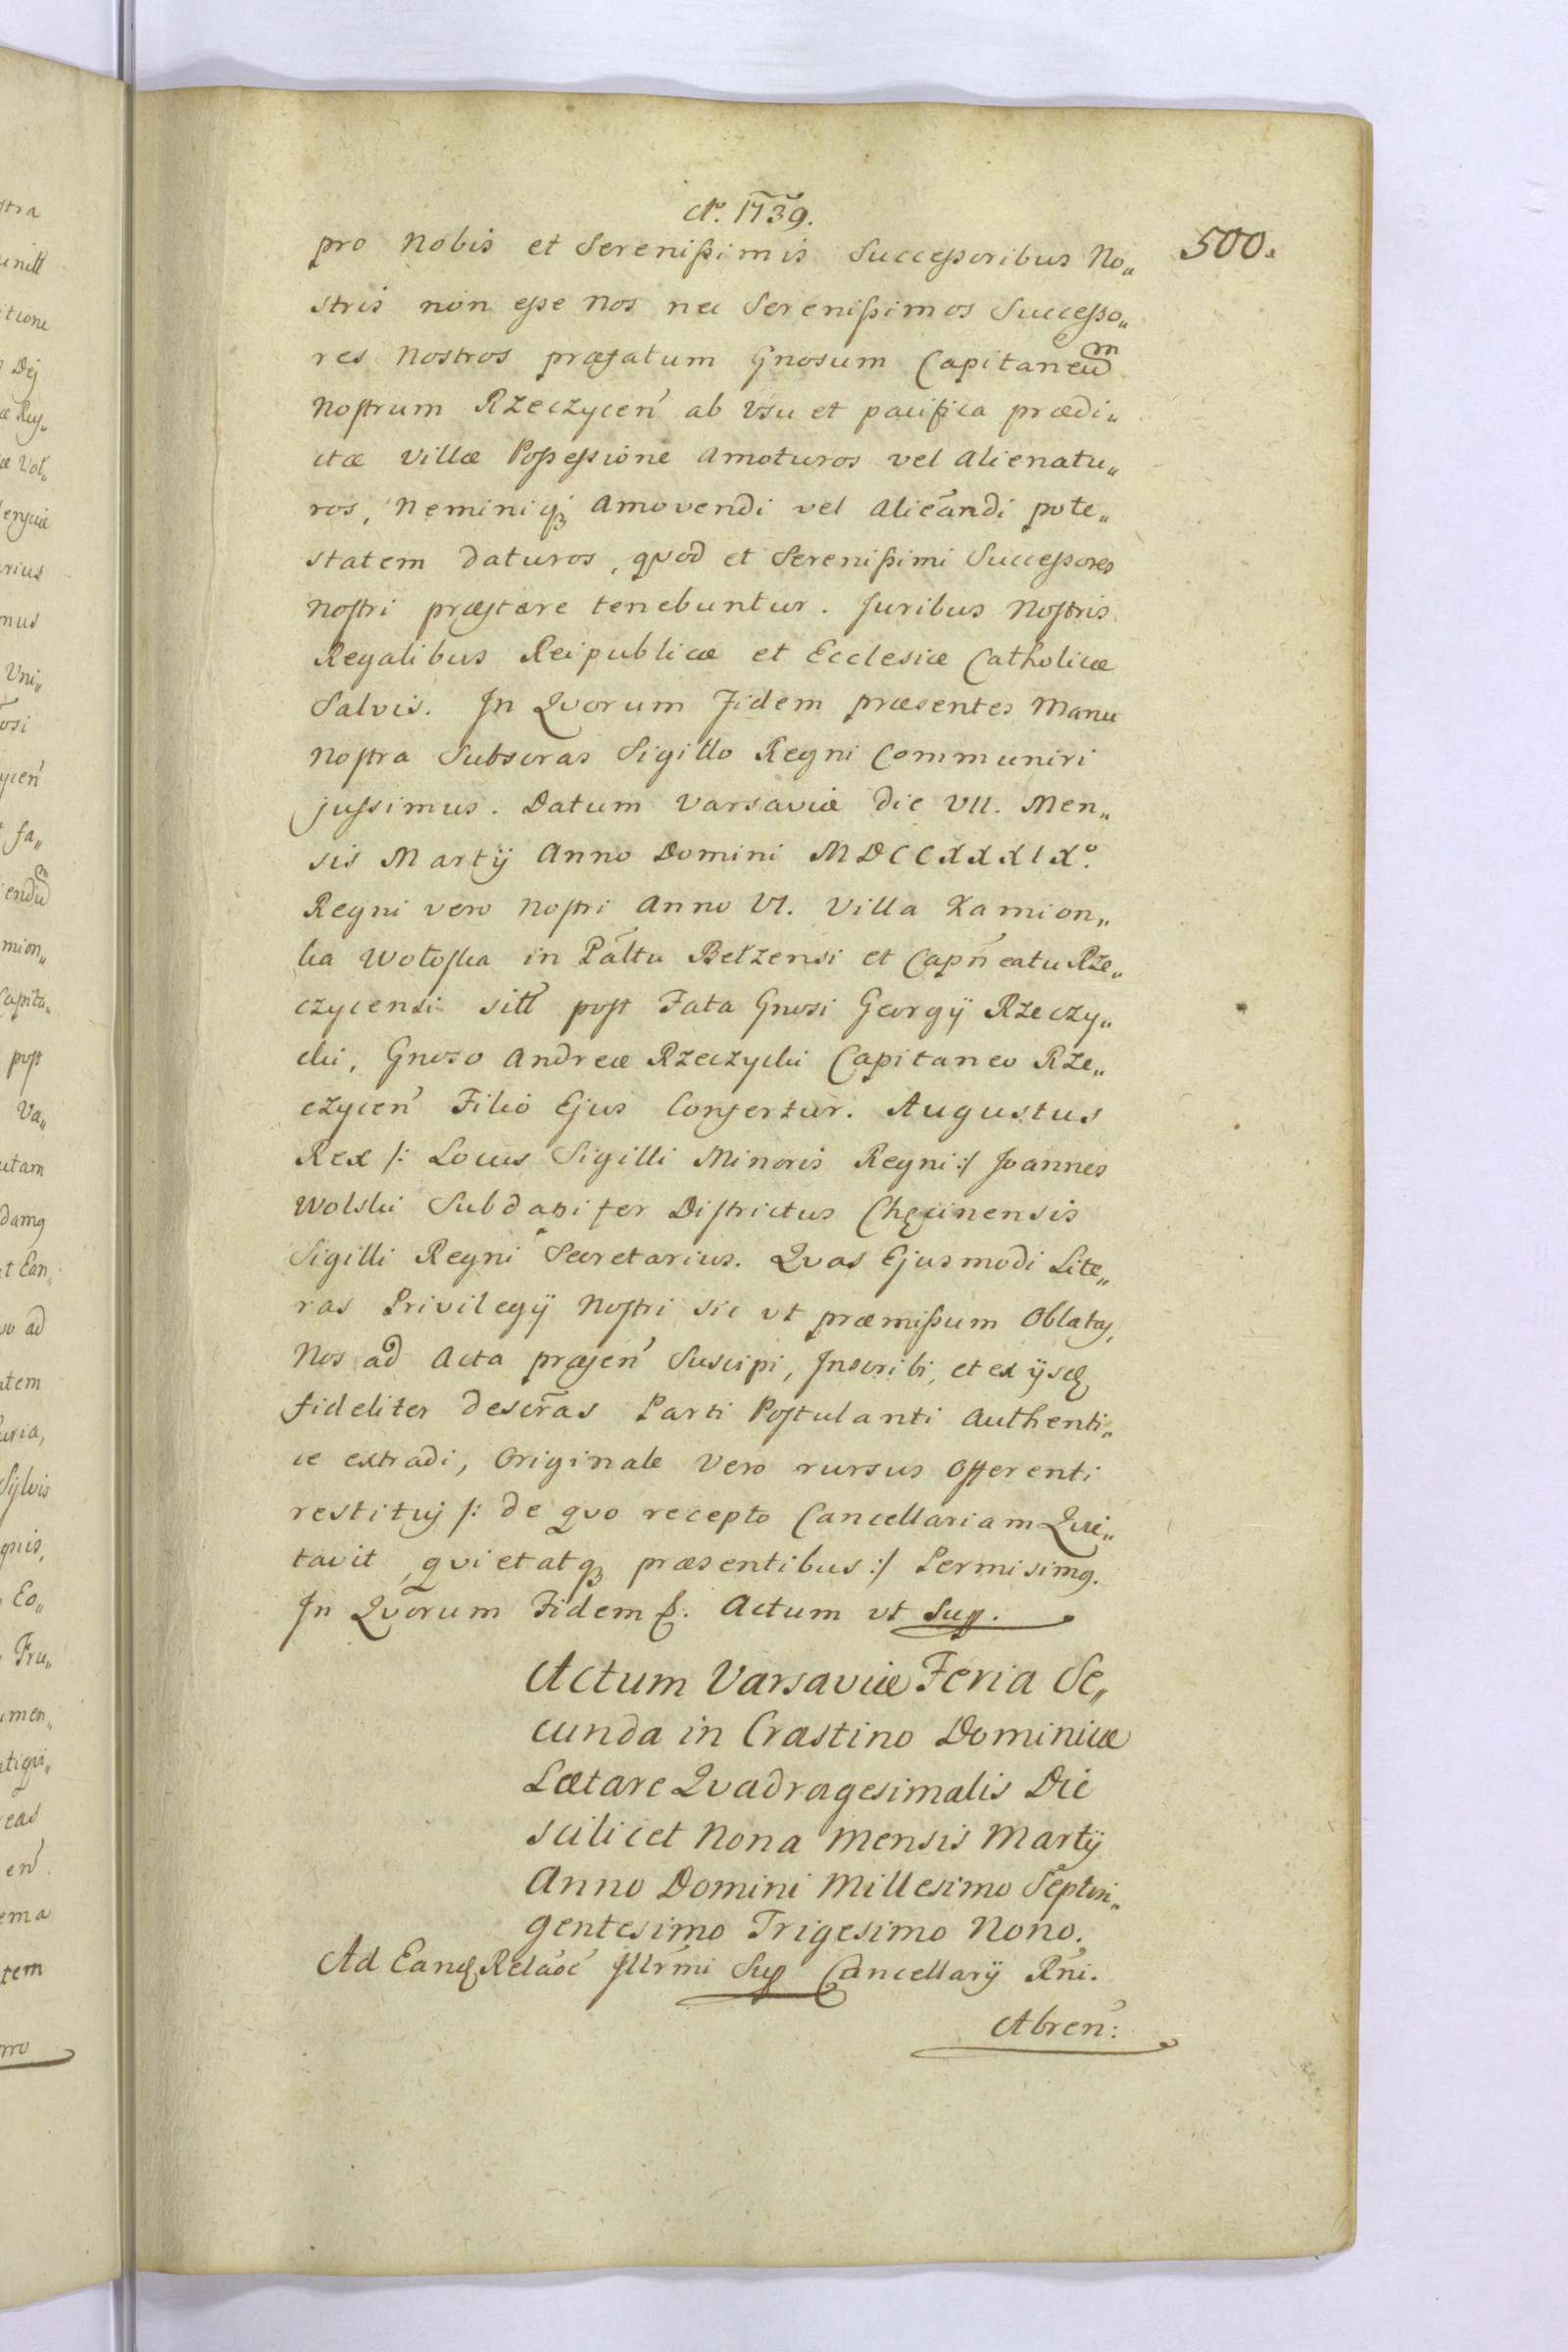 Ao. 1739.
500.
pro Nobis et Serenißimis Succeßoribus No„
stris non eße Nos nec Serenißimos Succeßo„
res Nostros præfatum Gnosum Capitaneum
Nostrum Rzeczyceń ab Vsu et pacifica prædi„
ctæ Villæ Poßeßione amoturos vel alienatu„
ros, Neminiq́ꝫ amovendi vel aliēandi pote„
statem daturos, qvod et Serenißimi Succeßores
Nostri præstare tenebuntur. Juribus Nostris
Regalibus Reipublicæ et Ecclesiæ Catholicæ
Salvis. In Qvorum Fidem præsentes Manu
Nostra Subscras Sigillo Regni Communiri
jußimus. Datum Varsaviæ Die VII. Men„
sis Martij Anno Domini MDCCXXXIXº.
Regni vero Nostri Anno VI. Villa Kamion„
ka Wołoska in Pałtu Bełzensi et Capńeatu Rze„
czycensi sitt post Fata Gnosi Georgij Rzeczy„
cki, Gnoso Andreæ Rzeczycki Capitaneo Rze„
czyceń Filio Ejus Confertur. Augustus
Rex /: Locus Sigilli Minoris Regni :/ Joannes
Wolski Subdapifer Districtus Chęcinensis
Sigilli Regni Secretarius. Qvas Ejusmodi Lite„
ras Privilegij Nostri sic vt præmißum Oblatas,
Nos ad Acta præseń Suscipi, Inscribi, et ex ijsdē
fideliter descr̃as Parti Postulanti Authenti„
ce extradi, Originale Vero rursus Offerenti
restituj /: de qvo recepto Cancellariam Qvie„
tavit, qvietatqꝫ præsentibus :/ Permisimꝰ.
In Qvorum Fidem &. Actum vt Sup.
Actum Varsaviæ Feria Se„
cunda in Crastino Dominicæ
Lætare Qvadragesimalis Die
scilicet Nona Mensis Martij
Anno Domini Millesimo Septin„
gentesimo Trigesimo Nono.
Ad Eandē Relaõe Illrm̃i Sup Cancellarij Rñi.
Abreń: